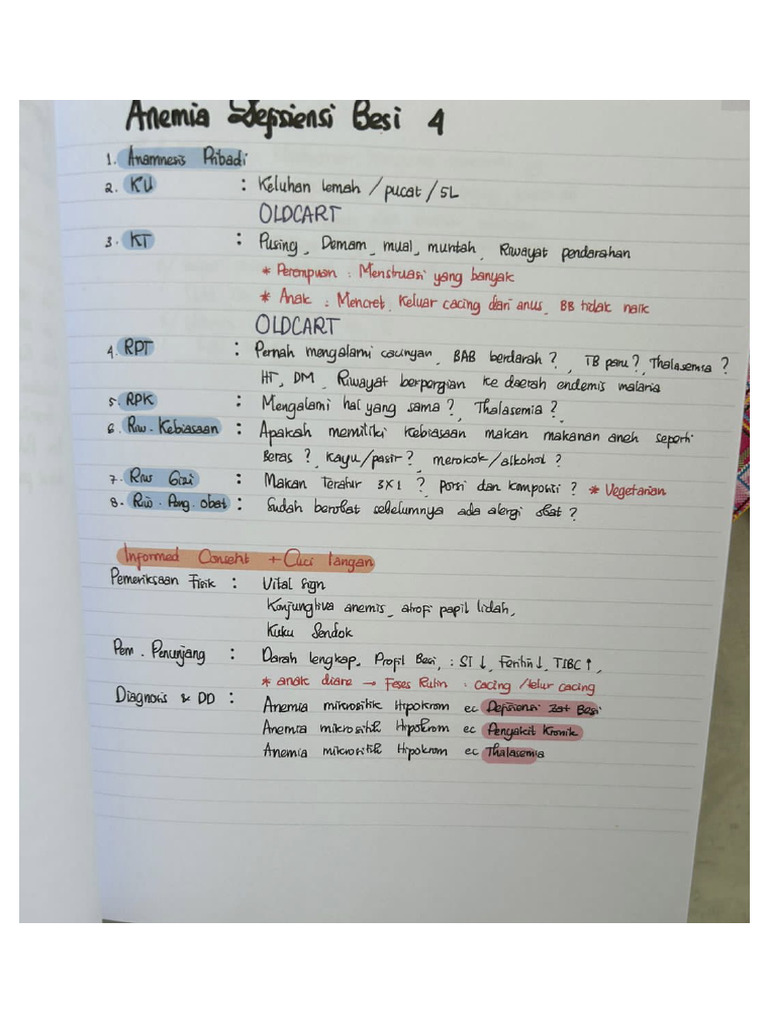 Anemia Defisiensi Besi 4
1. Anamnesis Pribadi
2. KU : Keluhan lemah / pucat / 5L
OLDCART
3. KT : Pusing, Demam, mual, muntah, Riwayat pendarahan
* Perempuan : Menstruasi yang banyak
* Anak : Mencret, Keluar cacing dari anus, BB tidak naik
OLDCART
4. RPT : Pernah mengalami cacingan, BAB berdarah ?, TB paru ?, Thalasemia ?
HT, DM, Riwayat berpergian ke daerah endemis malaria
5. RPK : Mengalami hal yang sama ?, Thalasemia ?
6. Riw. Kebiasaan : Apakah memiliki kebiasaan makan makanan aneh seperti
Beras ?, Kayu/pasir ?, merokok/alkohol ?
7. Riw Gizi : Makan Teratur 3x1 ? porsi dan komposisi ? * Vegetarian
8. Riw. Peng. obat : Sudah berobat sebelumnya ada alergi obat ?
Informed Consent + Cuci Tangan
Pemeriksaan Fisik : Vital sign
Konjungtiva anemis, atrofi papil lidah,
Kuku Sendok
Pem. Penunjang : Darah lengkap, Profil Besi, : SI ↓, Feritin ↓, TIBC ↑,
* anak diare → Feses Rutin : cacing /telur cacing
Diagnosis & DD : Anemia mikrositik Hipokrom ec Defisiensi Zat Besi
Anemia mikrositik Hipokrom ec Penyakit Kronik
Anemia mikrositik Hipokrom ec Thalasemia